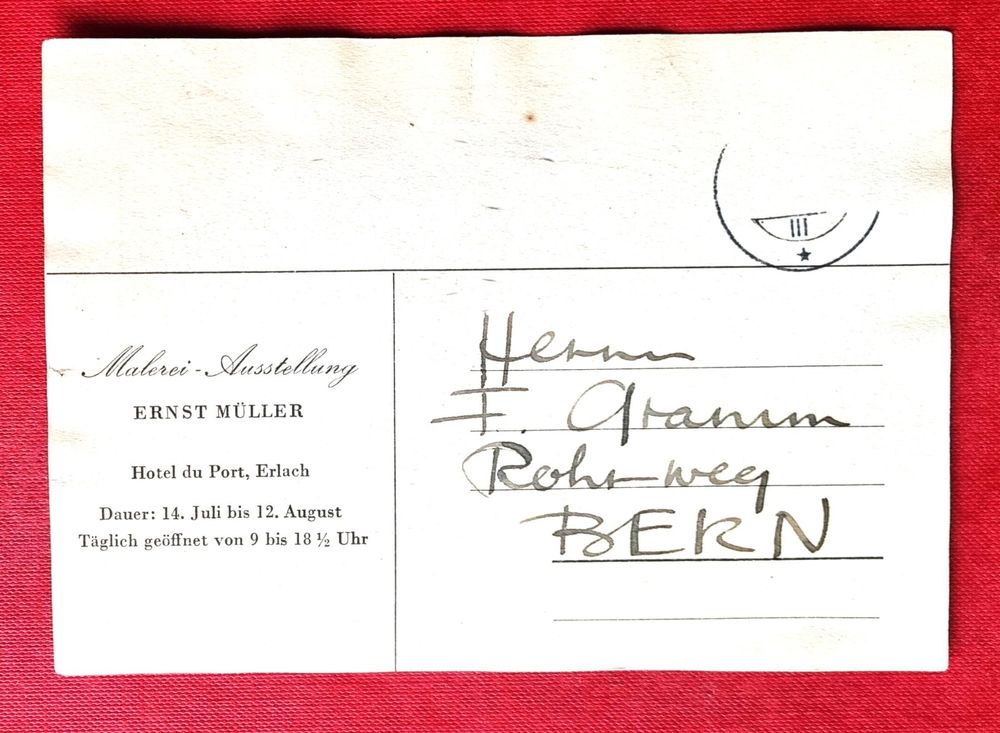 Malerei-Ausstellung
ERNST MÜLLER
Hotel du Port, Erlach
Dauer: 14. Juli bis 12. August
Täglich geöffnet von 9 bis 18 ½ Uhr
III
Herrn
F. Gramm
Rohrweg
BERN